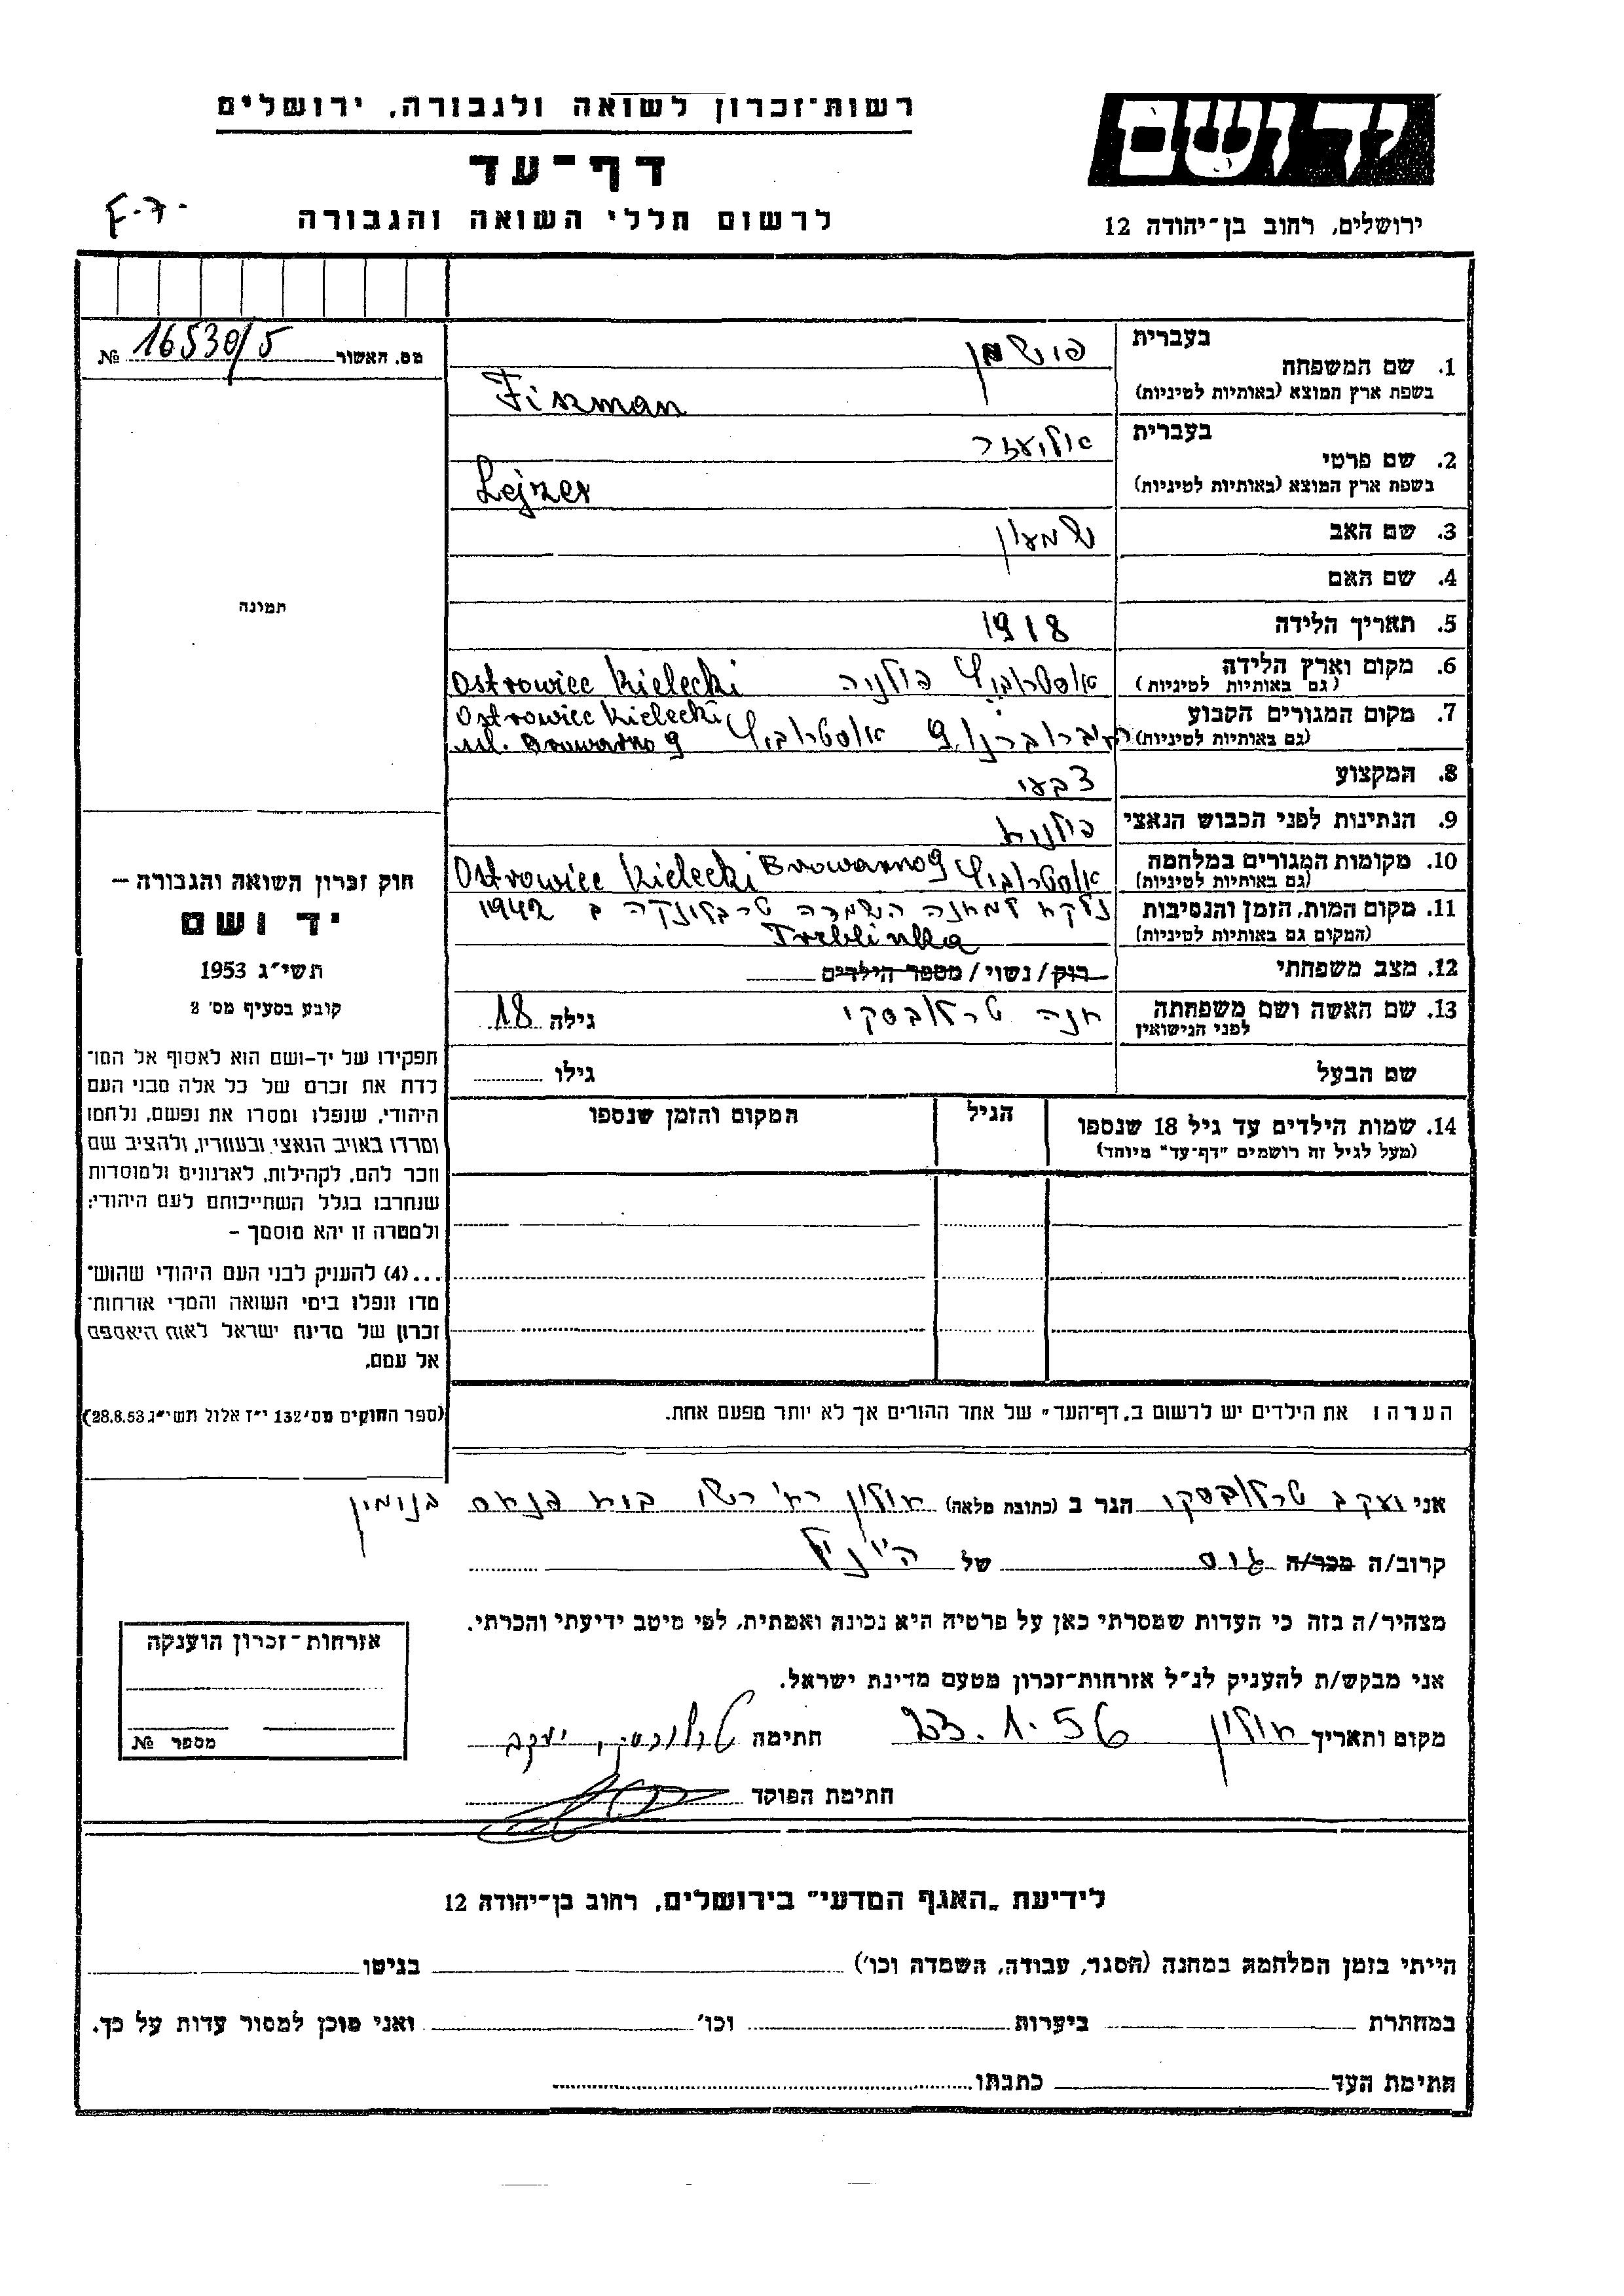 רשות־זכרון לשואה ולגבורה, ירושלים
דף־עד
לרשום חללי השואה והגבורה
יד ושם
ירושלים, רחוב בן־יהודה 12
מס. האשור 16530/5 №
תמונה
חוק זכרון השואה והגבורה –
יד ושם
תשי״ג 1953
קובע בסעיף מס׳ 2
תפקידו של יד-ושם הוא לאסוף אל המו־
לדת את זכרם של כל אלה מבני העם
היהודי, שנפלו ומסרו את נפשם, נלחמו
ומרדו באויב הנאצי ובעוזריו, ולהציב שם
וזכר להם, לקהילות, לארגונים ולמוסדות
שנחרבו בגלל השתייכותם לעם היהודי;
ולמטרה זו יהא מוסמך –
...(4) להעניק לבני העם היהודי שהוש־
מדו ונפלו בימי השואה והמרי אזרחות־
זכרון של מדינת ישראל לאות היאספם
אל עמם.
(ספר החוקים מס׳ 132 י״ז אלול תשי״ג 28.8.53)
בעברית
1. שם המשפחה פישמן
בשפת ארץ המוצא (באותיות לטיניות) Fiszman
בעברית
2. שם פרטי אליעזר
בשפת ארץ המוצא (באותיות לטיניות) Lejzer
3. שם האב שמעון
4. שם האם
5. תאריך הלידה 1918
6. מקום וארץ הלידה
(גם באותיות לטיניות) אוסטרוביץ פולניה Ostrowiec Kielecki
7. מקום המגורים הקבוע Ostrowiec Kielecki
(גם באותיות לטיניות) ברוברנו 9 אוסטרוביץ ul. Browarno 9
8. המקצוע צבעי
9. הנתינות לפני הכבוש הנאצי פולנית
10. מקומות המגורים במלחמה
(גם באותיות לטיניות) אוסטרוביץ Ostrowiec Kielecki Browarno 9
11. מקום המות, הזמן והנסיבות נלקח למחנה השמדה טרבלינקה ב 1942
(המקום גם באותיות לטיניות) Treblinka
12. מצב משפחתי רוק/ נשוי/ מספר הילדים
13. שם האשה ושם משפחתה חנה טרלובסקי גילה 18
לפני הנישואין
שם הבעל גילו
14. שמות הילדים עד גיל 18 שנספו הגיל המקום והזמן שנספו
(מעל לגיל זה רושמים "דף־עד" מיוחד)
הערה: את הילדים יש לרשום ב„דף־העד״ של אחד ההורים אך לא יותר מפעם אחת.
אני יעקב טרלובסקי הגר ב (כתובת מלאה) חולון רח׳ בית פנחס בנימין
קרוב/ה מכר/ה גיס של הנ״ל
מצהיר/ה בזה כי העדות שמסרתי כאן על פרטיה היא נכונה ואמתית, לפי מיטב ידיעתי והכרתי.
אני מבקש/ת להעניק לנ״ל אזרחות־זכרון מטעם מדינת ישראל.
מקום ותאריך חולון 23.1.56 חתימה טרלובסקי יעקב
חתימת הפוקד
אזרחות־זכרון הוענקה
מספר №
לידיעת „האגף המדעי״ בירושלים, רחוב בן־יהודה 12
הייתי בזמן המלחמה במחנה (הסגר, עבודה, השמדה וכו׳) בגיטו
במחתרת ביערות וכו׳ ואני מוכן למסור עדות על כך.
חתימת העד כתבתו